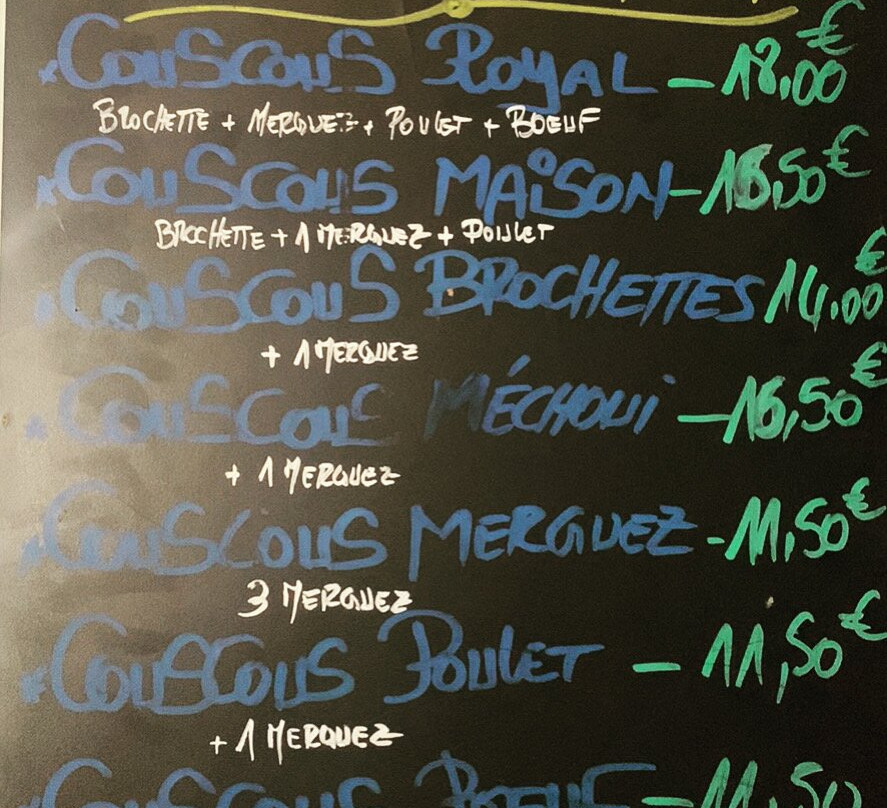 * COUSCOUS ROYAL - 18,00€
BROCHETTE + MERGUEZ + POULET + BOEUF
* COUSCOUS MAISON - 16,50€
BROCHETTE + 1 MERGUEZ + POULET
* COUSCOUS BROCHETTES 14,00€
+ 1 MERGUEZ
* COUSCOUS MÉCHOUI - 16,50€
+ 1 MERGUEZ
* COUSCOUS MERGUEZ - 11,50€
3 MERGUEZ
* COUSCOUS POULET - 11,50€
+ 1 MERGUEZ
COUSCOUS BOEUF - 11,50